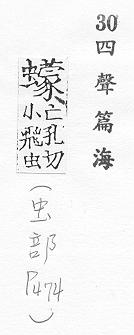 30 四聲篇海
蠓
亡孔切
小飛虫
(虫部 P474)